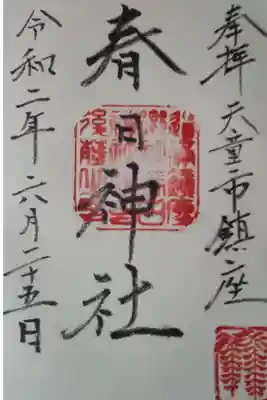 奉拝 天童市鎮座
春日神社
令和二年 六月二十五日